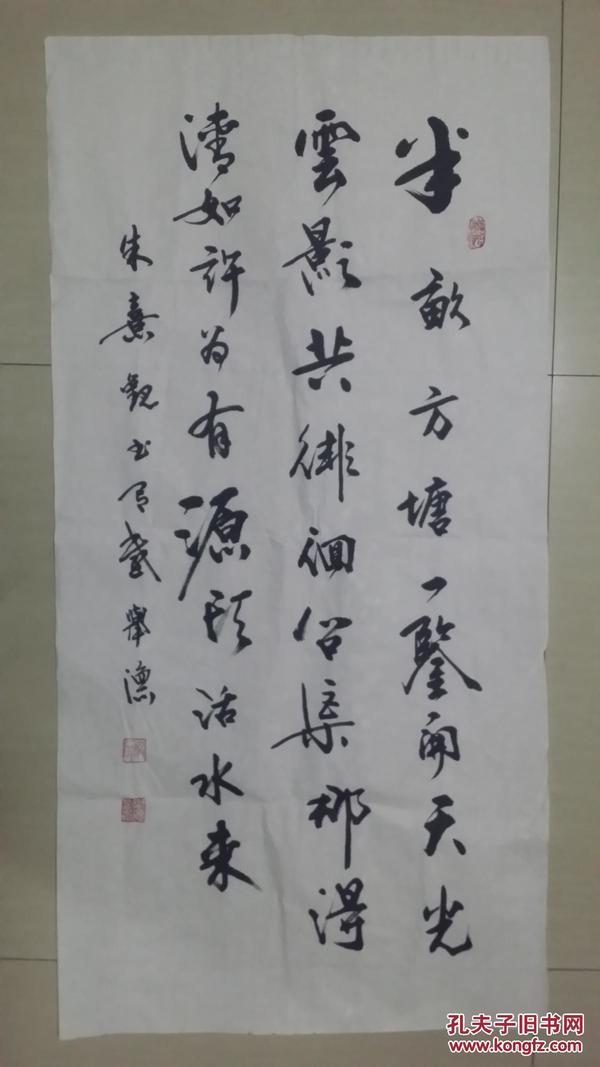 半畝方塘一鑒開天光
雲影共徘徊問渠那得
清如許為有源頭活水来
朱熹觀书有
孔夫子旧书网
www.kongfz.com